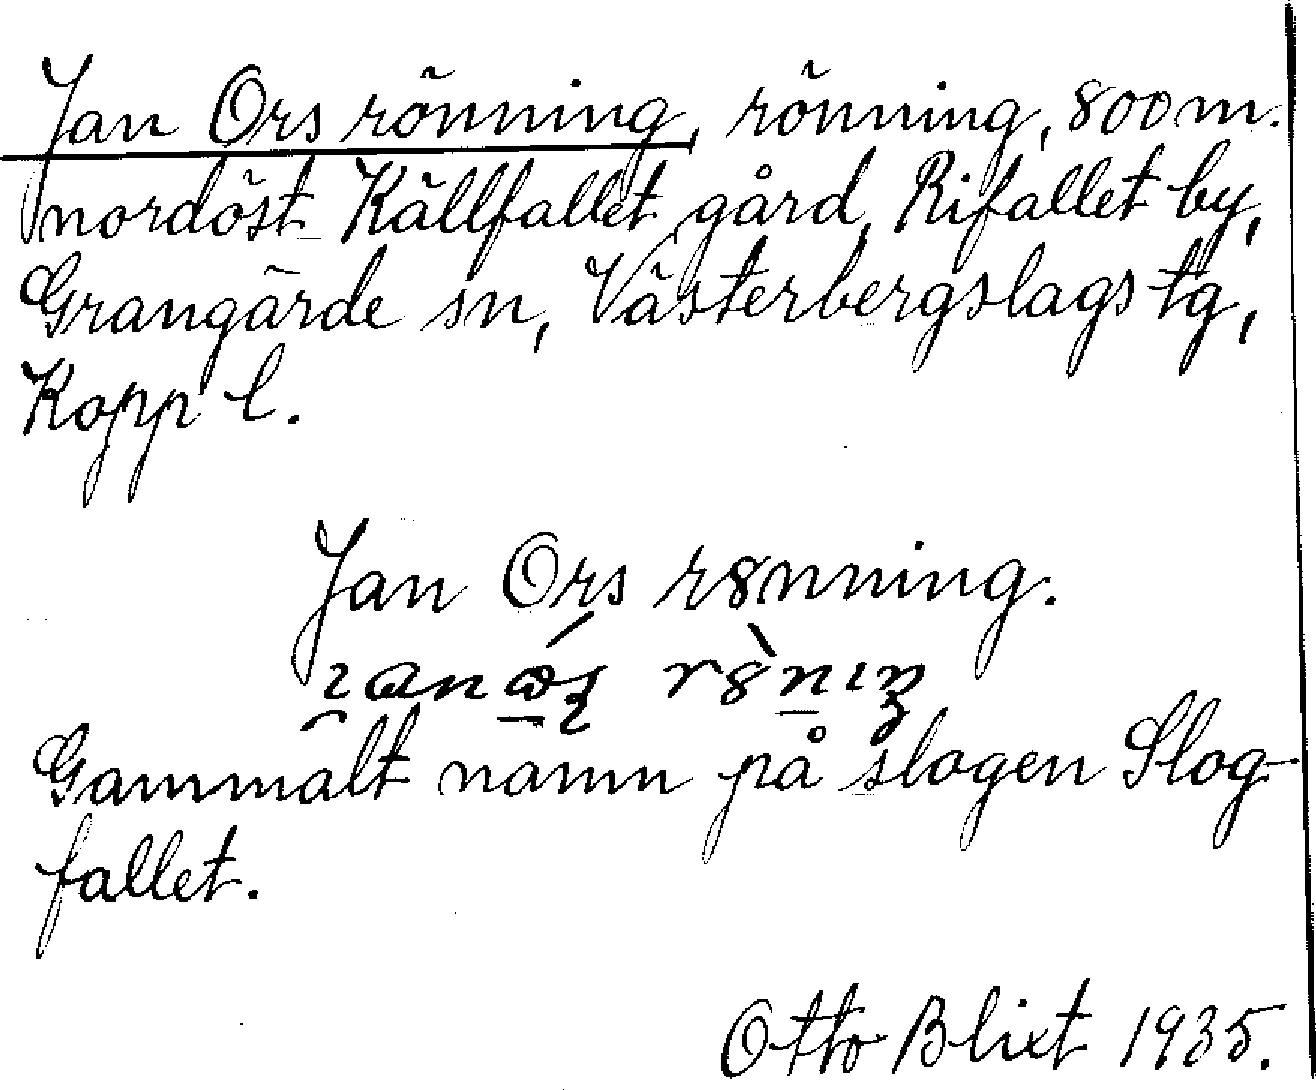 Jan Ors rönning, rönning, 800 m.
nordöst Källfallet gård, Rifallet by,
Grangärde sn, Västerbergslags tg,
Kopp l.
Jan Ors r8nning.
Gammalt namn på slogen Slog-
fallet.
Otto Blixt 1935.